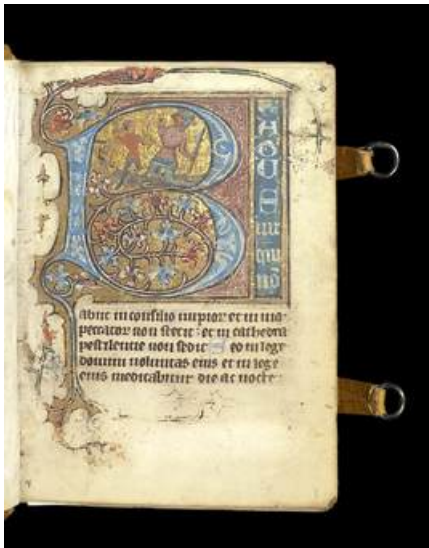 B
uir
qui
nō
abiit in consilio impior et in uia
peccator non stetit : et in cathedra
pestilentie non sedit eo in lege
domini uoluntas eius et in lege
eius meditabitur die ac nocte